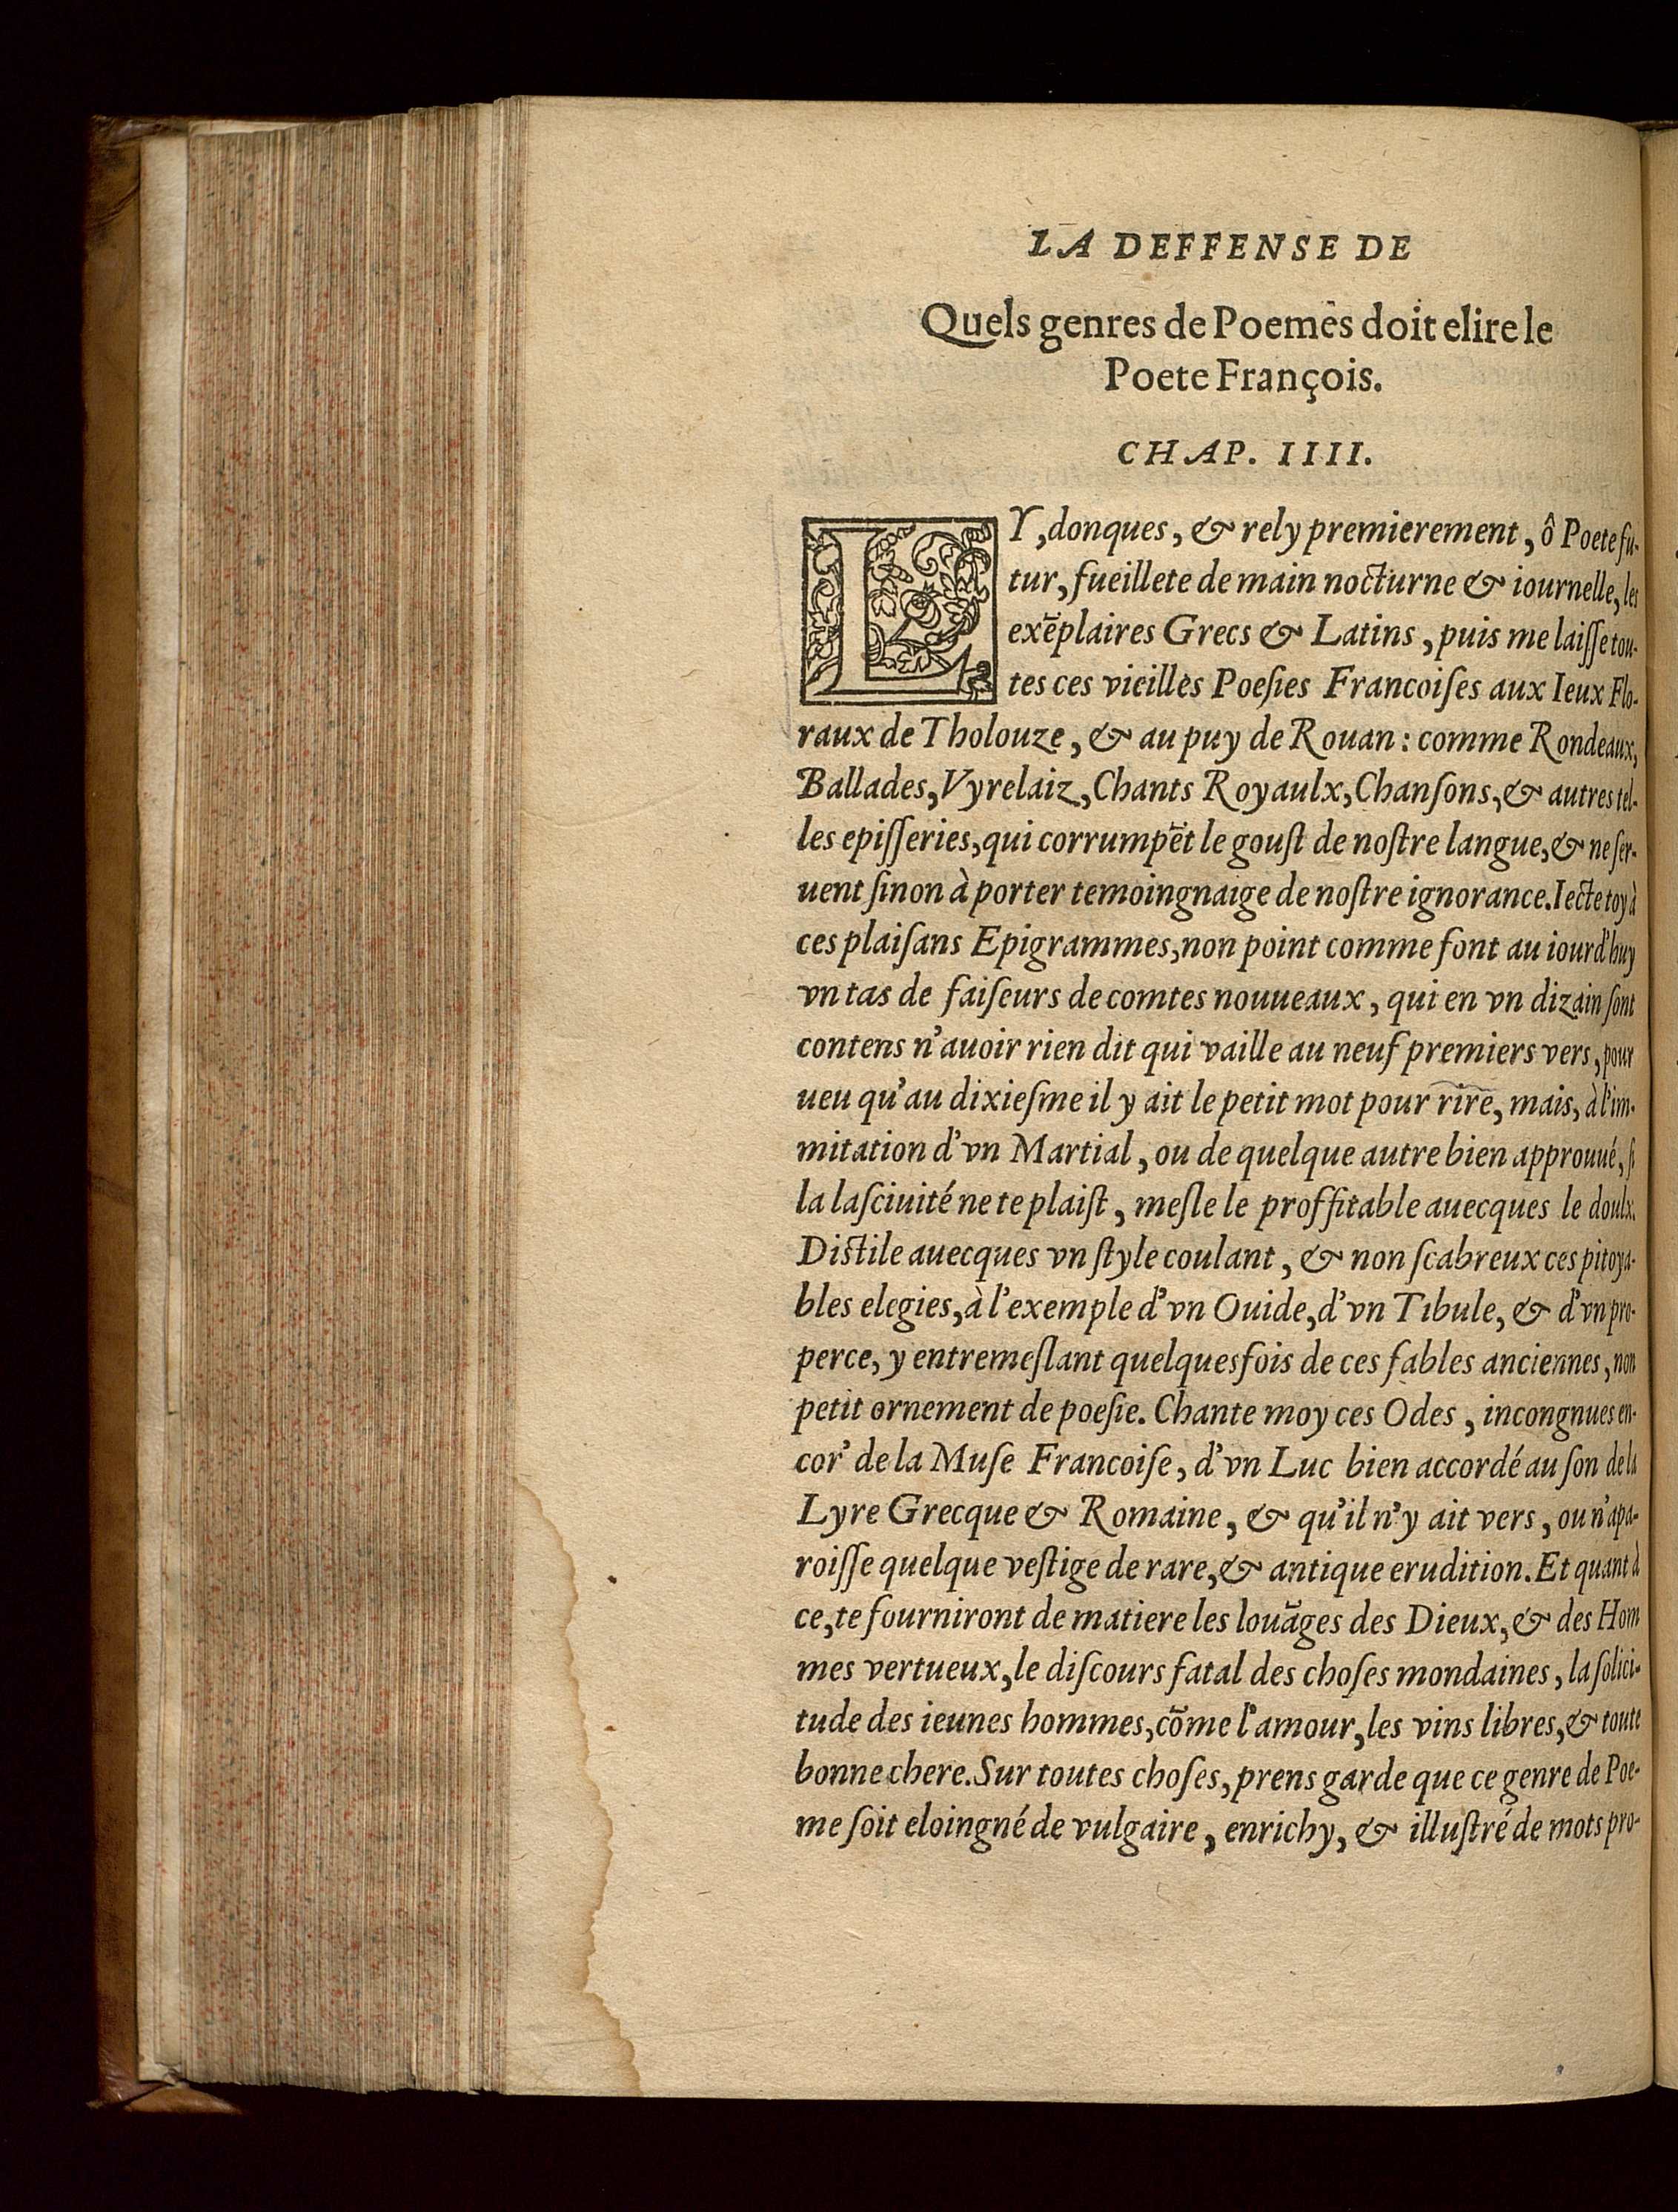 LA DEFFENSE DE
Quels genres de Poemes doit elire le
Poete François.
CHAP. IIII.
LY, donques, & rely premierement, ô Poete fu-
tur, fueillete de main nocturne & iournelle, les
exẽplaires Grecs & Latins, puis me laiſſe tou-
tes ces vieilles Poeſies Francoiſes aux Ieux Flo-
raux de Tholouze, & au puy de Rouan: comme Rondeaux,
Ballades, Vyrelaiz, Chants Royaulx, Chanſons, & autres tel-
les epiſſeries, qui corrumpẽt le gouſt de noſtre langue, & ne ſer-
uent ſinon à porter temoingnaige de noſtre ignorance. Iecte toy à
ces plaiſans Epigrammes, non point comme font au iourd'huy
vn tas de faiſeurs de comtes nouueaux, qui en vn dizain ſont
contens n'auoir rien dit qui vaille au neuf premiers vers, pour
ueu qu'au dixieſme il y ait le petit mot pour rire, mais, à l'im-
mitation d'vn Martial, ou de quelque autre bien approuué, ſi
la laſciuité ne te plaiſt, meſle le proffitable auecques le doulx.
Diſtile auecques vn ſtyle coulant, & non ſcabreux ces pitoya-
bles elegies, à l'exemple d'vn Ouide, d'vn Tibule, & d'vn pro-
perce, y entremeſlant quelquesfois de ces fables anciennes, non
petit ornement de poeſie. Chante moy ces Odes, incongnues en-
cor' de la Muſe Francoiſe, d'vn Luc bien accordé au ſon de la
Lyre Grecque & Romaine, & qu'il n'y ait vers, ou n'apa-
roiſſe quelque veſtige de rare, & antique erudition. Et quant à
ce, te fourniront de matiere les louãges des Dieux, & des Hom
mes vertueux, le diſcours fatal des choſes mondaines, la ſolici-
tude des ieunes hommes, cõme l'amour, les vins libres, & toute
bonne chere. Sur toutes choſes, prens garde que ce genre de Poe-
me ſoit eloingné de vulgaire, enrichy, & illuſtré de mots pro-